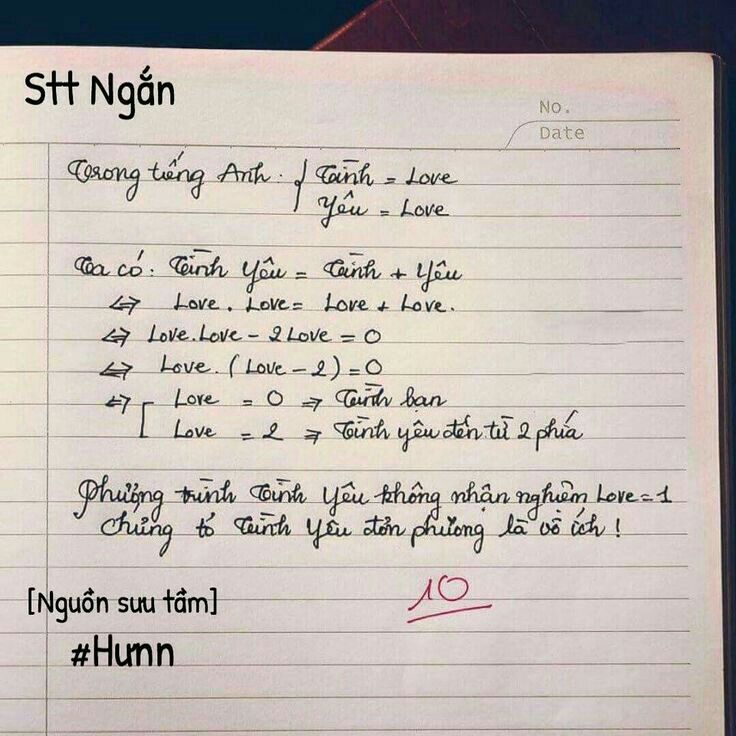 Stt Ngắn
No.
Date
Trong tiếng Anh: { Tình = Love
Yêu = Love
Ta có: Tình Yêu = Tình + Yêu
⇔ Love . Love = Love + Love.
⇔ Love.Love - 2Love = 0
⇔ Love. (Love - 2) = 0
⇔ [ Love = 0 ⇒ Tình bạn
Love = 2 ⇒ Tình yêu đến từ 2 phía
Phương trình Tình Yêu không nhận nghiệm Love = 1
Chứng tỏ Tình Yêu đơn phương là vô ích !
10
[Nguồn sưu tầm]
#Hưnn